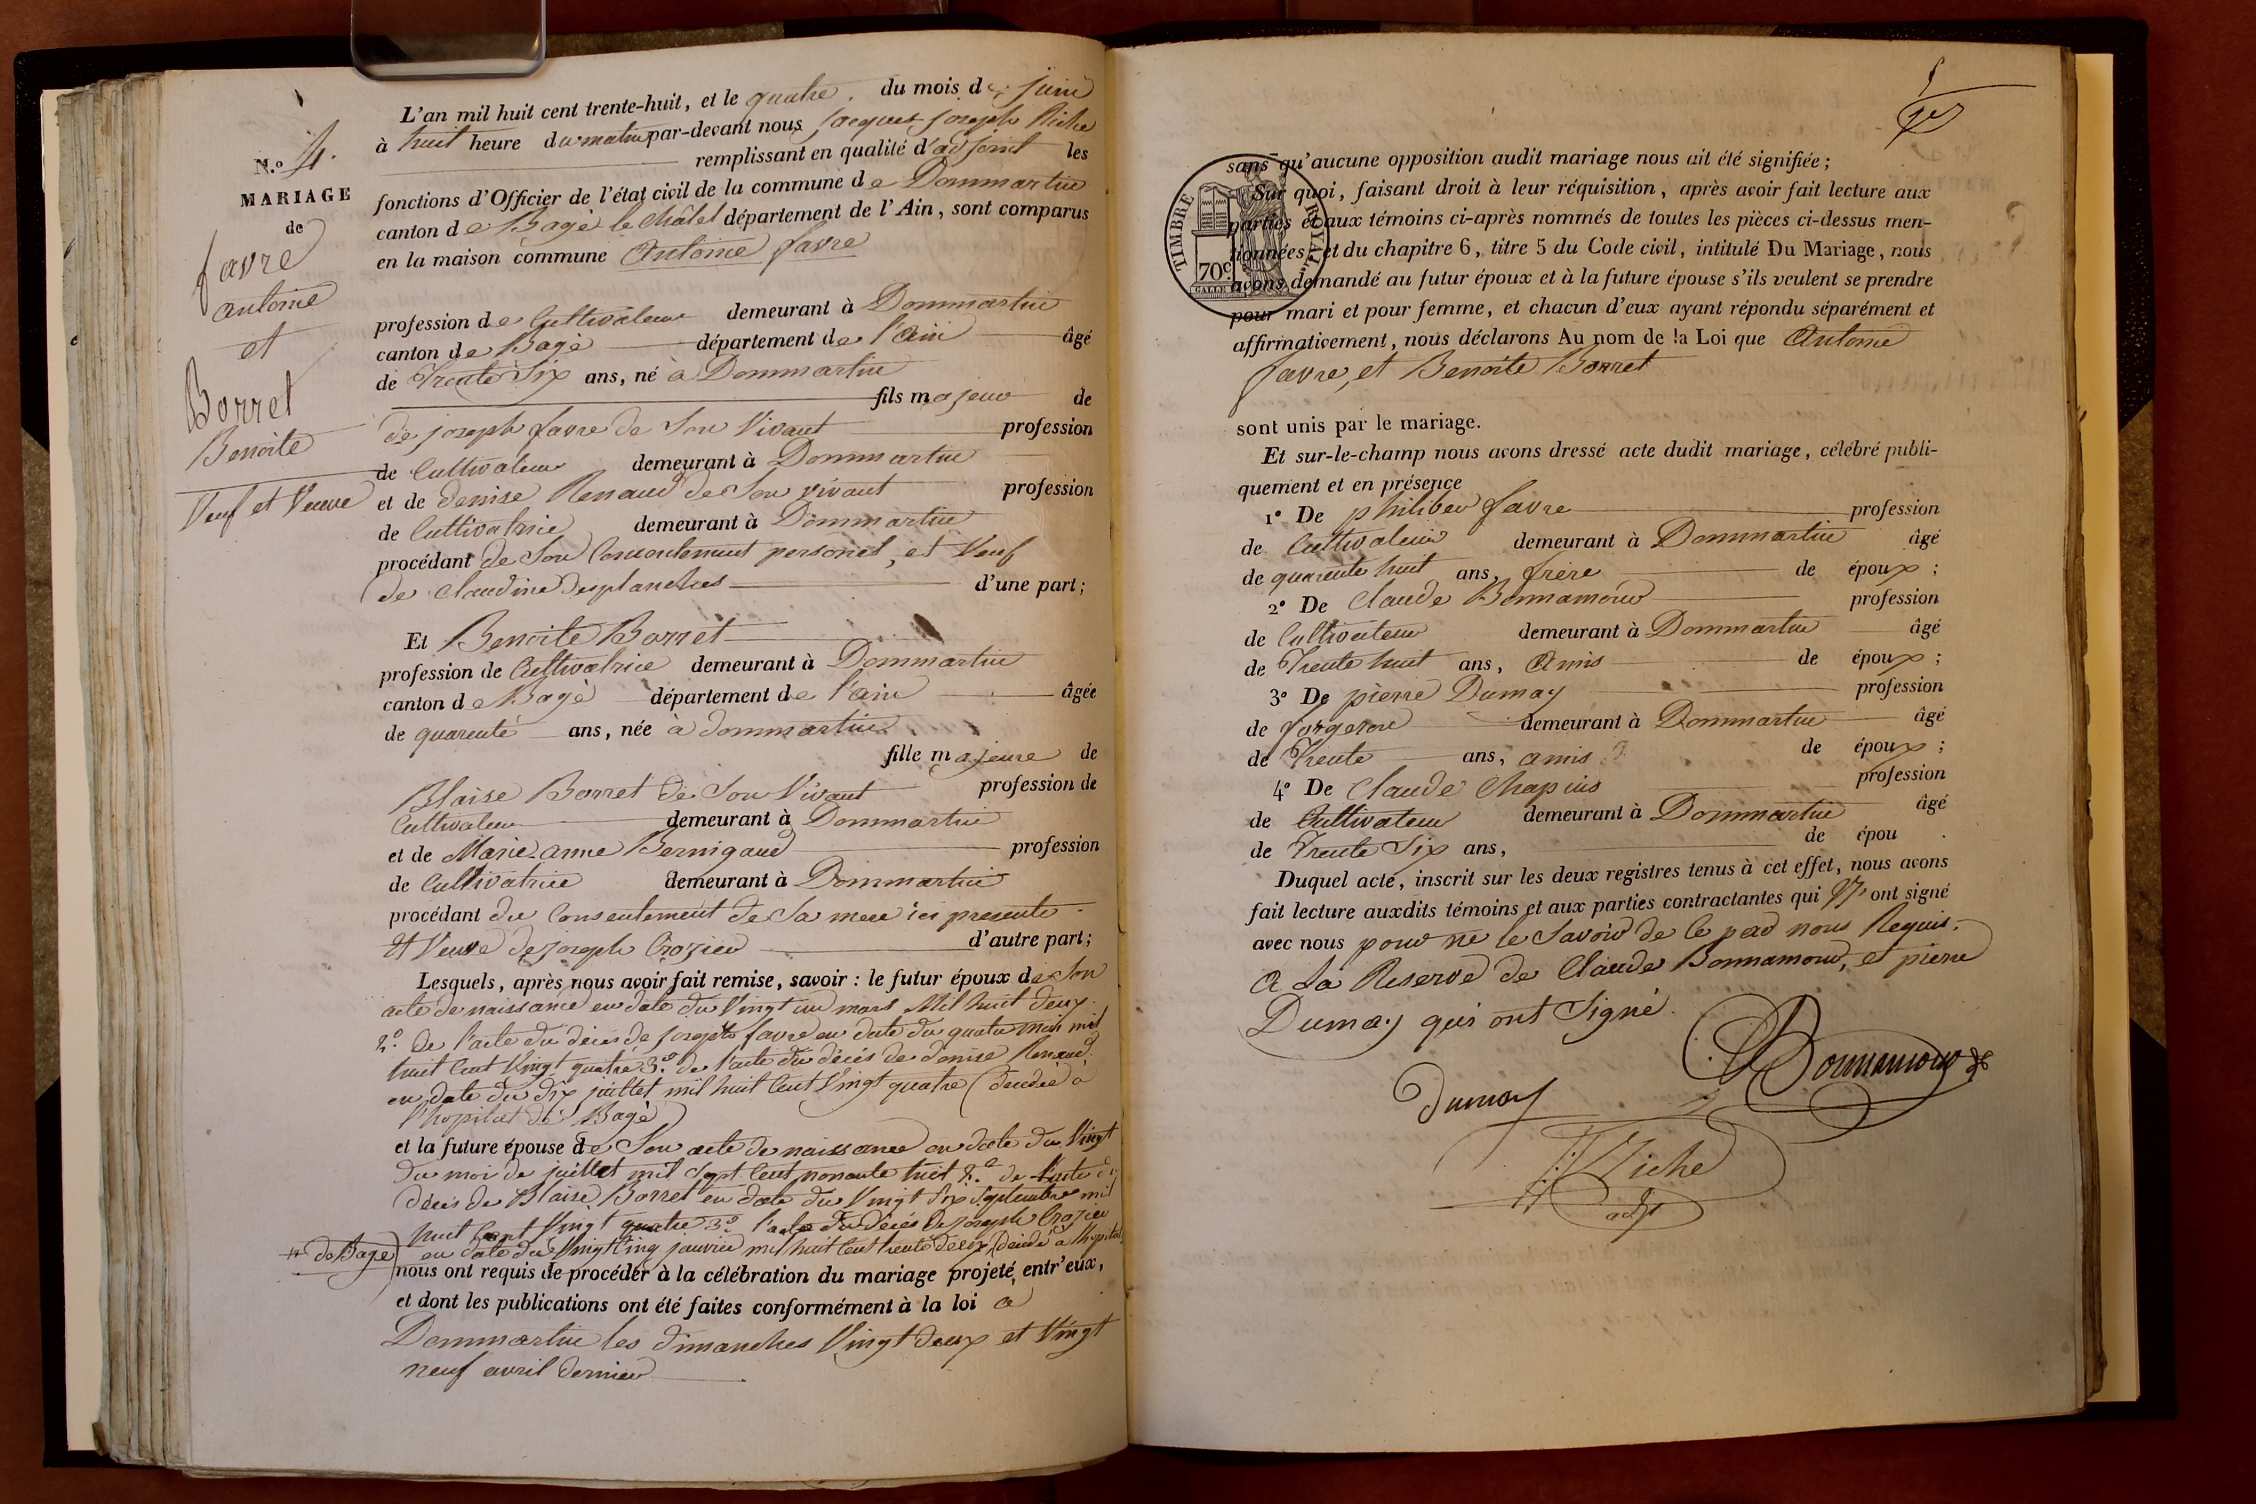 N.o 4.
MARIAGE
de
favre
antoine
et
Borret
Benoite
Veuf et Veuve
L'an mil huit cent trente-huit, et le quatre du mois de juin
à huit heure du matin par-devant nous jacques joseph Riche
remplissant en qualité d'adjoint les
fonctions d'Officier de l'état civil de la commune de Dommartin
canton de Bagé le Châtel département de l'Ain, sont comparus
en la maison commune Antoine favre
profession de Cultivateur demeurant à Dommartin
canton de Bagé département de l'ain âgé
de Trente Six ans, né à Dommartin
fils majeur de
de joseph favre de Son Vivant profession
de Cultivateur demeurant à Dommartin
et de denise Renaud de Son vivant profession
de Cultivatrice demeurant à Dommartin
procédant de Son Consentement personel, et Veuf
de Claudine Desplanches d'une part;
Et Benoite Borret
profession de Cultivatrice demeurant à Dommartin
canton de Bagé département de l'ain âgée
de quarente ans, née à dommartin
fille majeure de
Blaise Borret de Son Vivant profession de
Cultivateur demeurant à Dommartin
et de Marie-anne Bernigaud profession
de Cultivatrice demeurant à Dommartin
procédant du Consentement de Sa mere ici presente
et Veuve de joseph Crozier d'autre part;
Lesquels, après nous avoir fait remise, savoir : le futur époux de Son
acte de naissance en date du Vingt un mars Mil huit deux.
2.o De l'acte du décès de joseph favre en date du quatre mai mil
huit Cent Vingt quatre 3.o de l'acte du décès de denise Renaud
en date du dix juillet mil huit Cent Vingt quatre (decedée à
l'hopital de Bagé)
et la future épouse de Son acte de naissance en date du Vingt
du moi de juillet mil Sept Cent nonante huit 2.o de l'acte de
décès de Blaise Borret en date du Vingt Six Septembre mil
huit Cent Vingt quatre 3.o l'acte du décés de joseph Crozier
en date du Vingt Cinq janvier mil huit Cent trente deux (décédé à l'hopital
de Bagé)
nous ont requis de procéder à la célébration du mariage projeté entr'eux,
et dont les publications ont été faites conformément à la loi a
Dommartin les dimanches Vingt deux et Vingt
neuf avril dernier
TIMBRE ROYAL
70c.
sans qu'aucune opposition audit mariage nous ait été signifiée;
Sur quoi, faisant droit à leur réquisition, après avoir fait lecture aux
parties et aux témoins ci-après nommés de toutes les pièces ci-dessus men-
tionnées, et du chapitre 6, titre 5 du Code civil, intitulé Du Mariage, nous
avons demandé au futur époux et à la future épouse s'ils veulent se prendre
pour mari et pour femme, et chacun d'eux ayant répondu séparément et
affirmativement, nous déclarons Au nom de la Loi que Antoine
favre, et Benoite Borret
sont unis par le mariage.
Et sur-le-champ nous avons dressé acte dudit mariage, célébré publi-
quement et en présence
1° De philiber favre profession
de Cultivateur demeurant à Dommartin âgé
de quarente huit ans, frère de époux;
2° De Claude Bonnamour profession
de Cultivateur demeurant à Dommartin âgé
de Trente huit ans, Amis de époux;
3° De pierre Dumay profession
de forgeron demeurant à Dommartin âgé
de Trente ans, amis de époux;
4° De Claude Chapuis profession
de Cultivateur demeurant à Dommartin âgé
de Trente Six ans, de épou
Duquel acte, inscrit sur les deux registres tenus à cet effet, nous avons
fait lecture auxdits témoins et aux parties contractantes qui ont signé
avec nous pour ne le Savoir de ce par nous Requis.
a La Reserve de Claude Bonnamour, et pierre
Dumay qui ont Signé.
Bonnamour
dumay
Riche
adjt